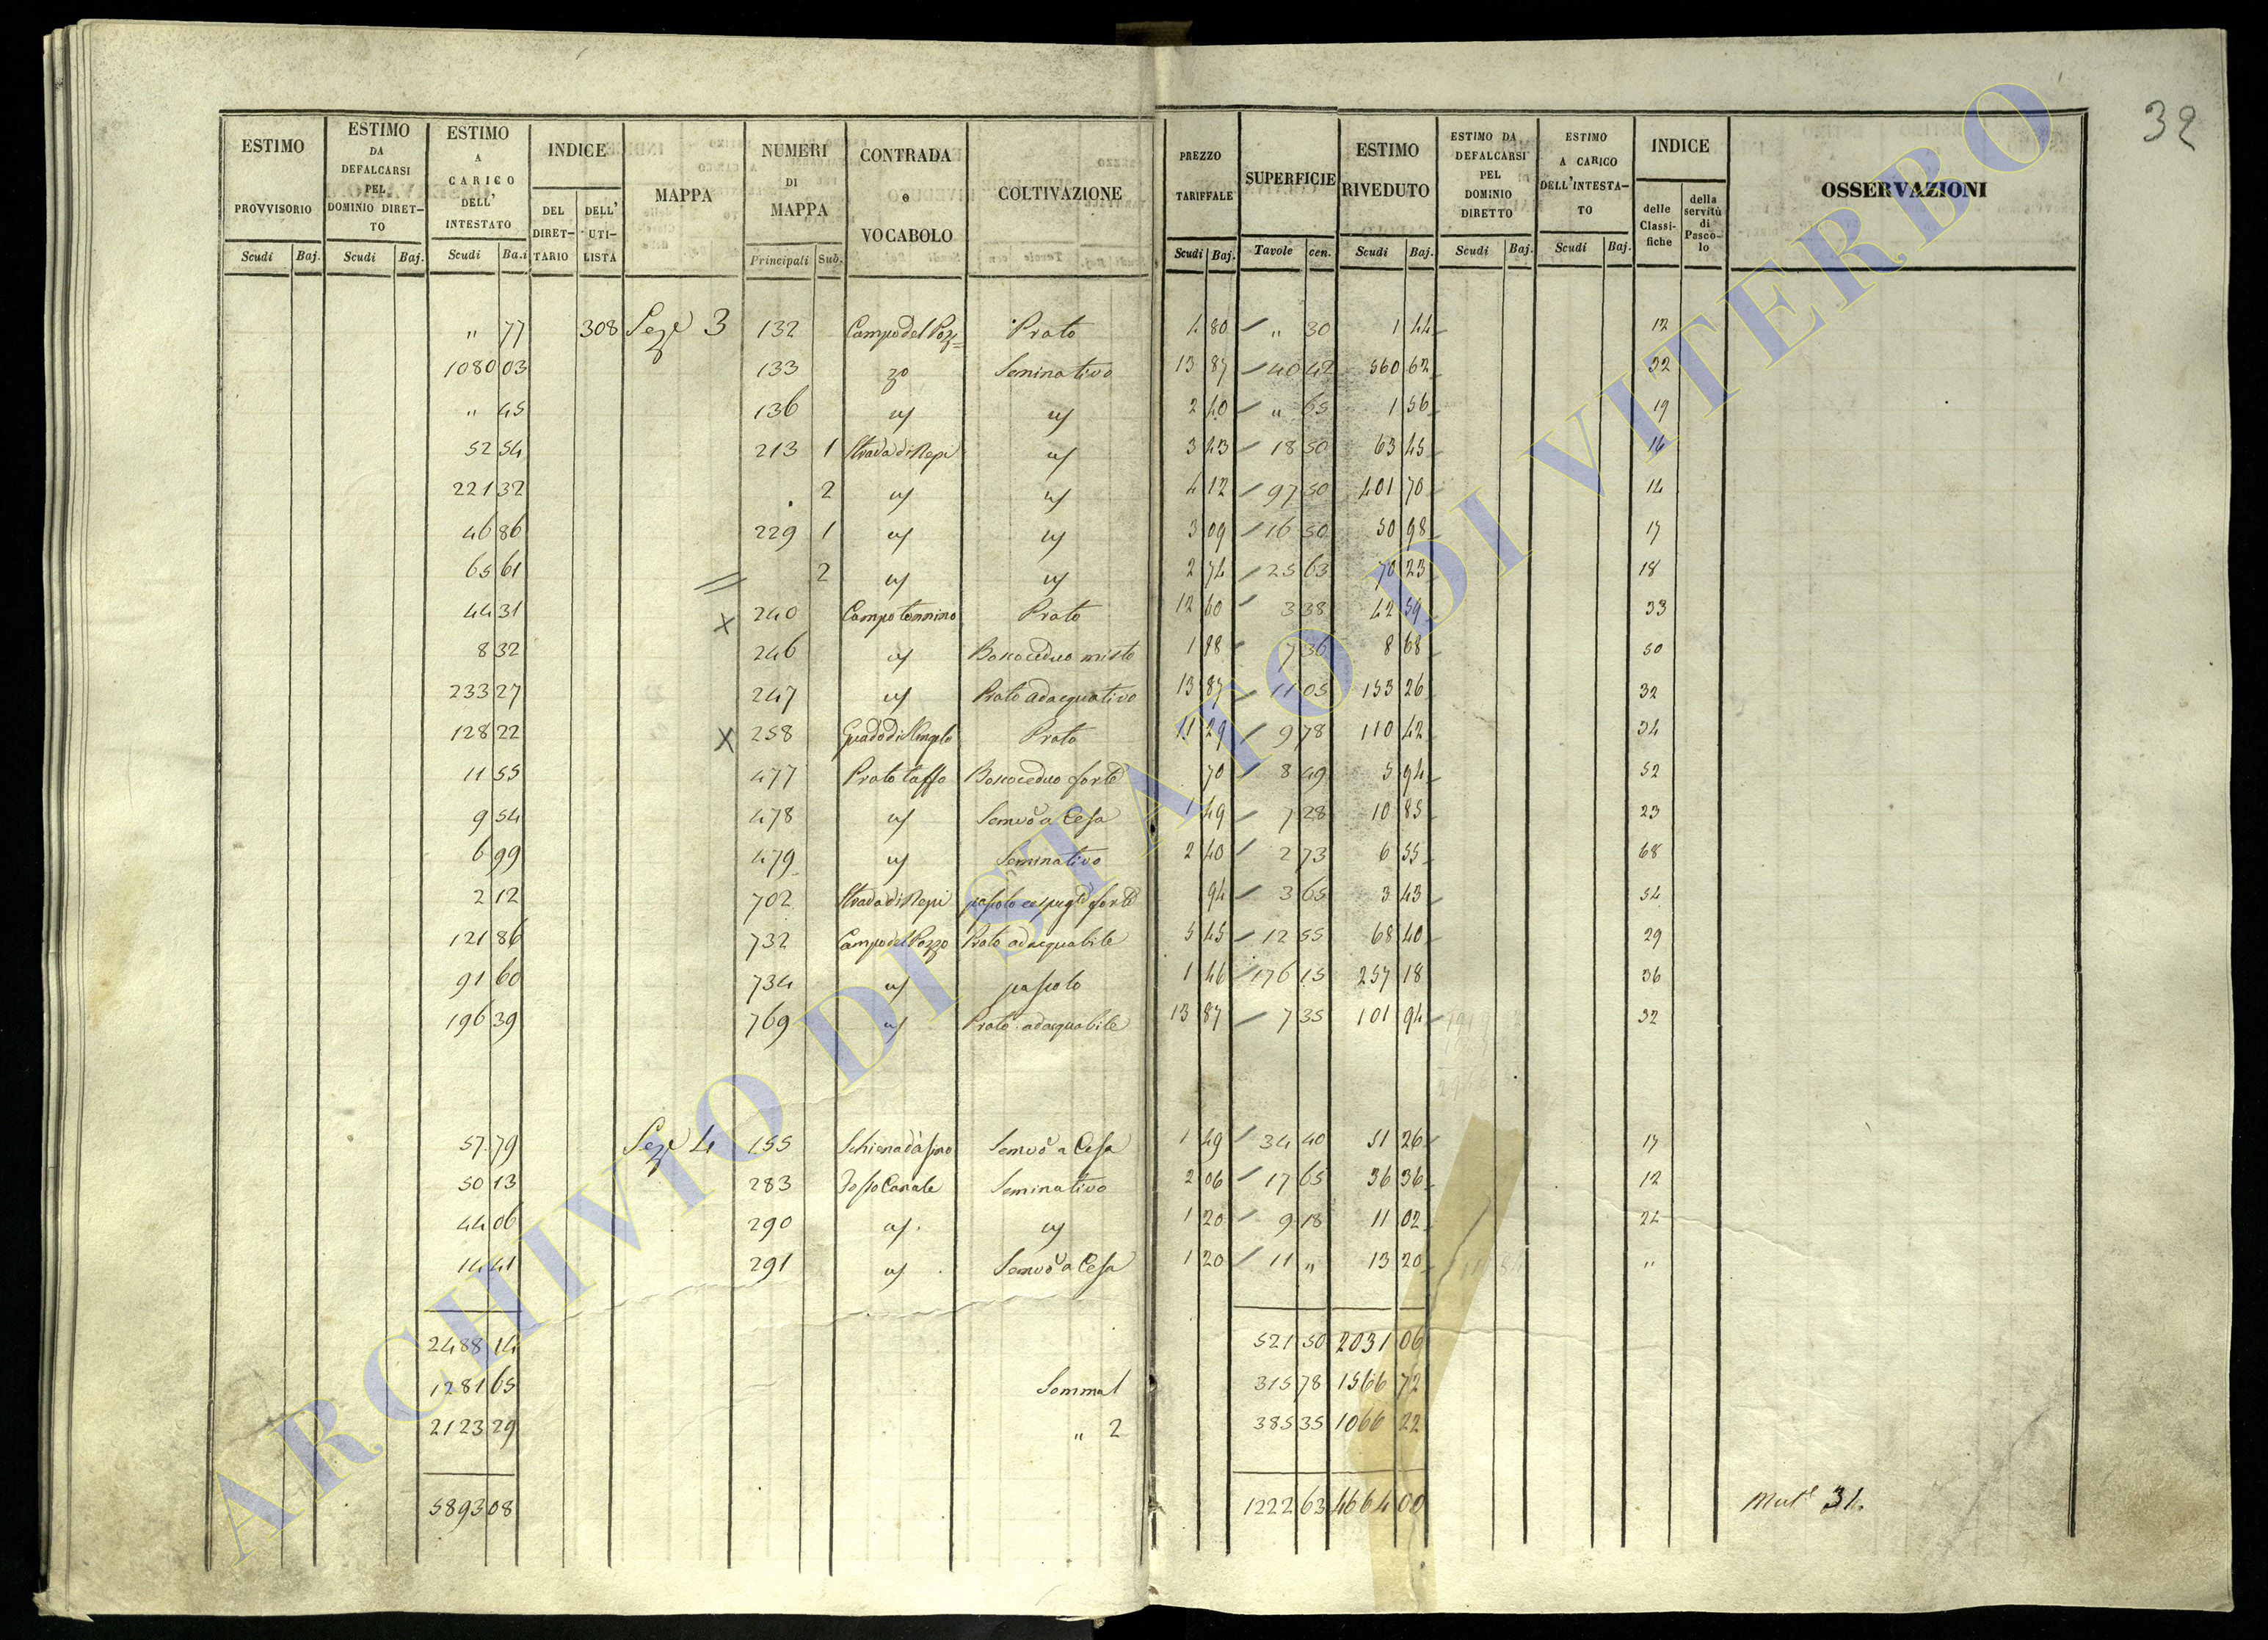 32
ESTIMO PROVVISORIO | ESTIMO DA DEFALCARSI PEL DOMINIO DIRETTO | ESTIMO A CARICO DELL' INTESTATO | INDICE | MAPPA | NUMERI DI MAPPA | CONTRADA o VOCABOLO | COLTIVAZIONE | PREZZO TARIFFALE | SUPERFICIE | ESTIMO RIVEDUTO | ESTIMO DA DEFALCARSI PEL DOMINIO DIRETTO | ESTIMO A CARICO DELL'INTESTATO | INDICE | OSSERVAZIONI
DEL DIRETTARIO | DELL' UTILISTA | delle Classifiche | della servitù di Pascolo
Scudi | Baj. | Scudi | Baj. | Scudi | Ba.i | Principali | Sub. | Scudi | Baj. | Tavole | cen. | Scudi | Baj. | Scudi | Baj. | Scudi | Baj.
" 77 | 308 | Seze 3 | 132 | Campo del Poz= | Prato | 4 80 | " 30 | 1 44 | 12
1080 03 | 133 | zo | Seminativo | 13 87 | 40 42 | 560 62 | 32
" 45 | 136 | " | " | 2 40 | " 65 | 1 56 | 19
52 54 | 213 | 1 | Strada di Nepi | " | 3 43 | 18 50 | 63 45 | 16
221 32 | 2 | " | " | 4 12 | 97 50 | 401 70 | 14
46 86 | 229 | 1 | " | " | 3 09 | 16 50 | 50 98 | 17
65 61 | 2 | " | " | 2 74 | 25 63 | 70 23 | 18
44 31 | X | 240 | Campo tonnino | Prato | 12 60 | 3 38 | 42 59 | 33
8 32 | 246 | " | Bosco ceduo misto | 1 18 | 7 36 | 8 68 | 50
233 27 | 247 | " | Prato adacquativo | 13 87 | 11 05 | 153 26 | 32
128 22 | X | 258 | Guado di | Prato | 11 29 | 9 78 | 110 42 | 34
11 55 | 477 | Prato tasso | Bosco ceduo forte | 70 | 8 49 | 5 94 | 52
9 54 | 478 | " | Semvo a Cesa | 1 49 | 7 28 | 10 85 | 23
6 99 | 479 | " | Seminativo | 2 40 | 2 73 | 6 55 | 68
2 12 | 702 | Strada di Nepi | pascolo cespugto forte | 94 | 3 65 | 3 43 | 54
121 86 | 732 | Campo del Pozzo | Prato adacquabile | 5 45 | 12 55 | 68 40 | 29
91 60 | 734 | " | pascolo | 1 46 | 176 15 | 257 18 | 36
196 39 | 769 | " | Prato adacquabile | 13 87 | 7 35 | 101 94 | 32
57 79 | Seze 4 | 155 | Schiena d'asino | Semvo a Cesa | 1 49 | 34 40 | 51 26 | 17
50 13 | 283 | Fosso Canale | Seminativo | 2 06 | 17 65 | 36 36 | 12
44 06 | 290 | " | " | 1 20 | 9 18 | 11 02 | 24
14 41 | 291 | " | Semvo a Cesa | 1 20 | 11 " | 13 20 | "
2488 14 | 521 50 | 2031 06
1281 65 | Somma 1 | 315 78 | 1566 72
2123 29 | " 2 | 385 35 | 1066 22
5893 08 | 1222 63 | 4664 00 | Mute 31.
ARCHIVIO DI STATO DI VITERBO